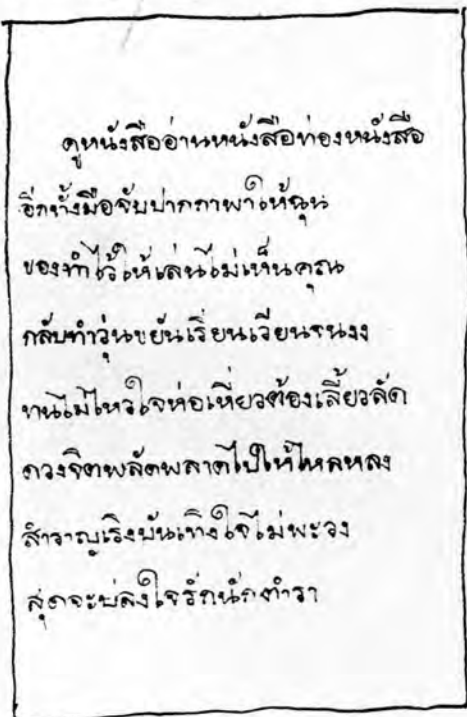 ดูหนังสืออ่านหนังสือท่องหนังสือ
อีกทั้งมือจับปากกาพาให้ฉุน
ของทำไว้ให้เล่นไม่เห็นคุณ
กลับทำวุ่นขยันเรียนเวียนจนงง
ทนไม่ไหวใจห่อเหี่ยวต้องเลี้ยวลัด
ดวงจิตพลัดพลาดไปให้ไหลหลง
สำราญเริงบันเทิงใจไม่พะวง
สุดจะปลงใจรักนักตำรา